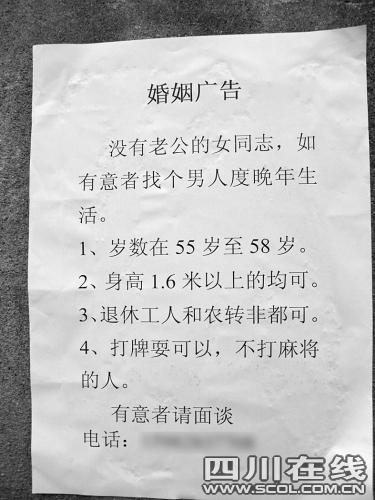 婚姻广告
没有老公的女同志，如
有意者找个男人度晚年生
活。
1、岁数在 55 岁至 58 岁。
2、身高 1.6 米以上的均可。
3、退休工人和农转非都可。
4、打牌耍可以，不打麻将
的人。
有意者请面谈
电话：
四川在线
WWW.SCOL.COM.CN